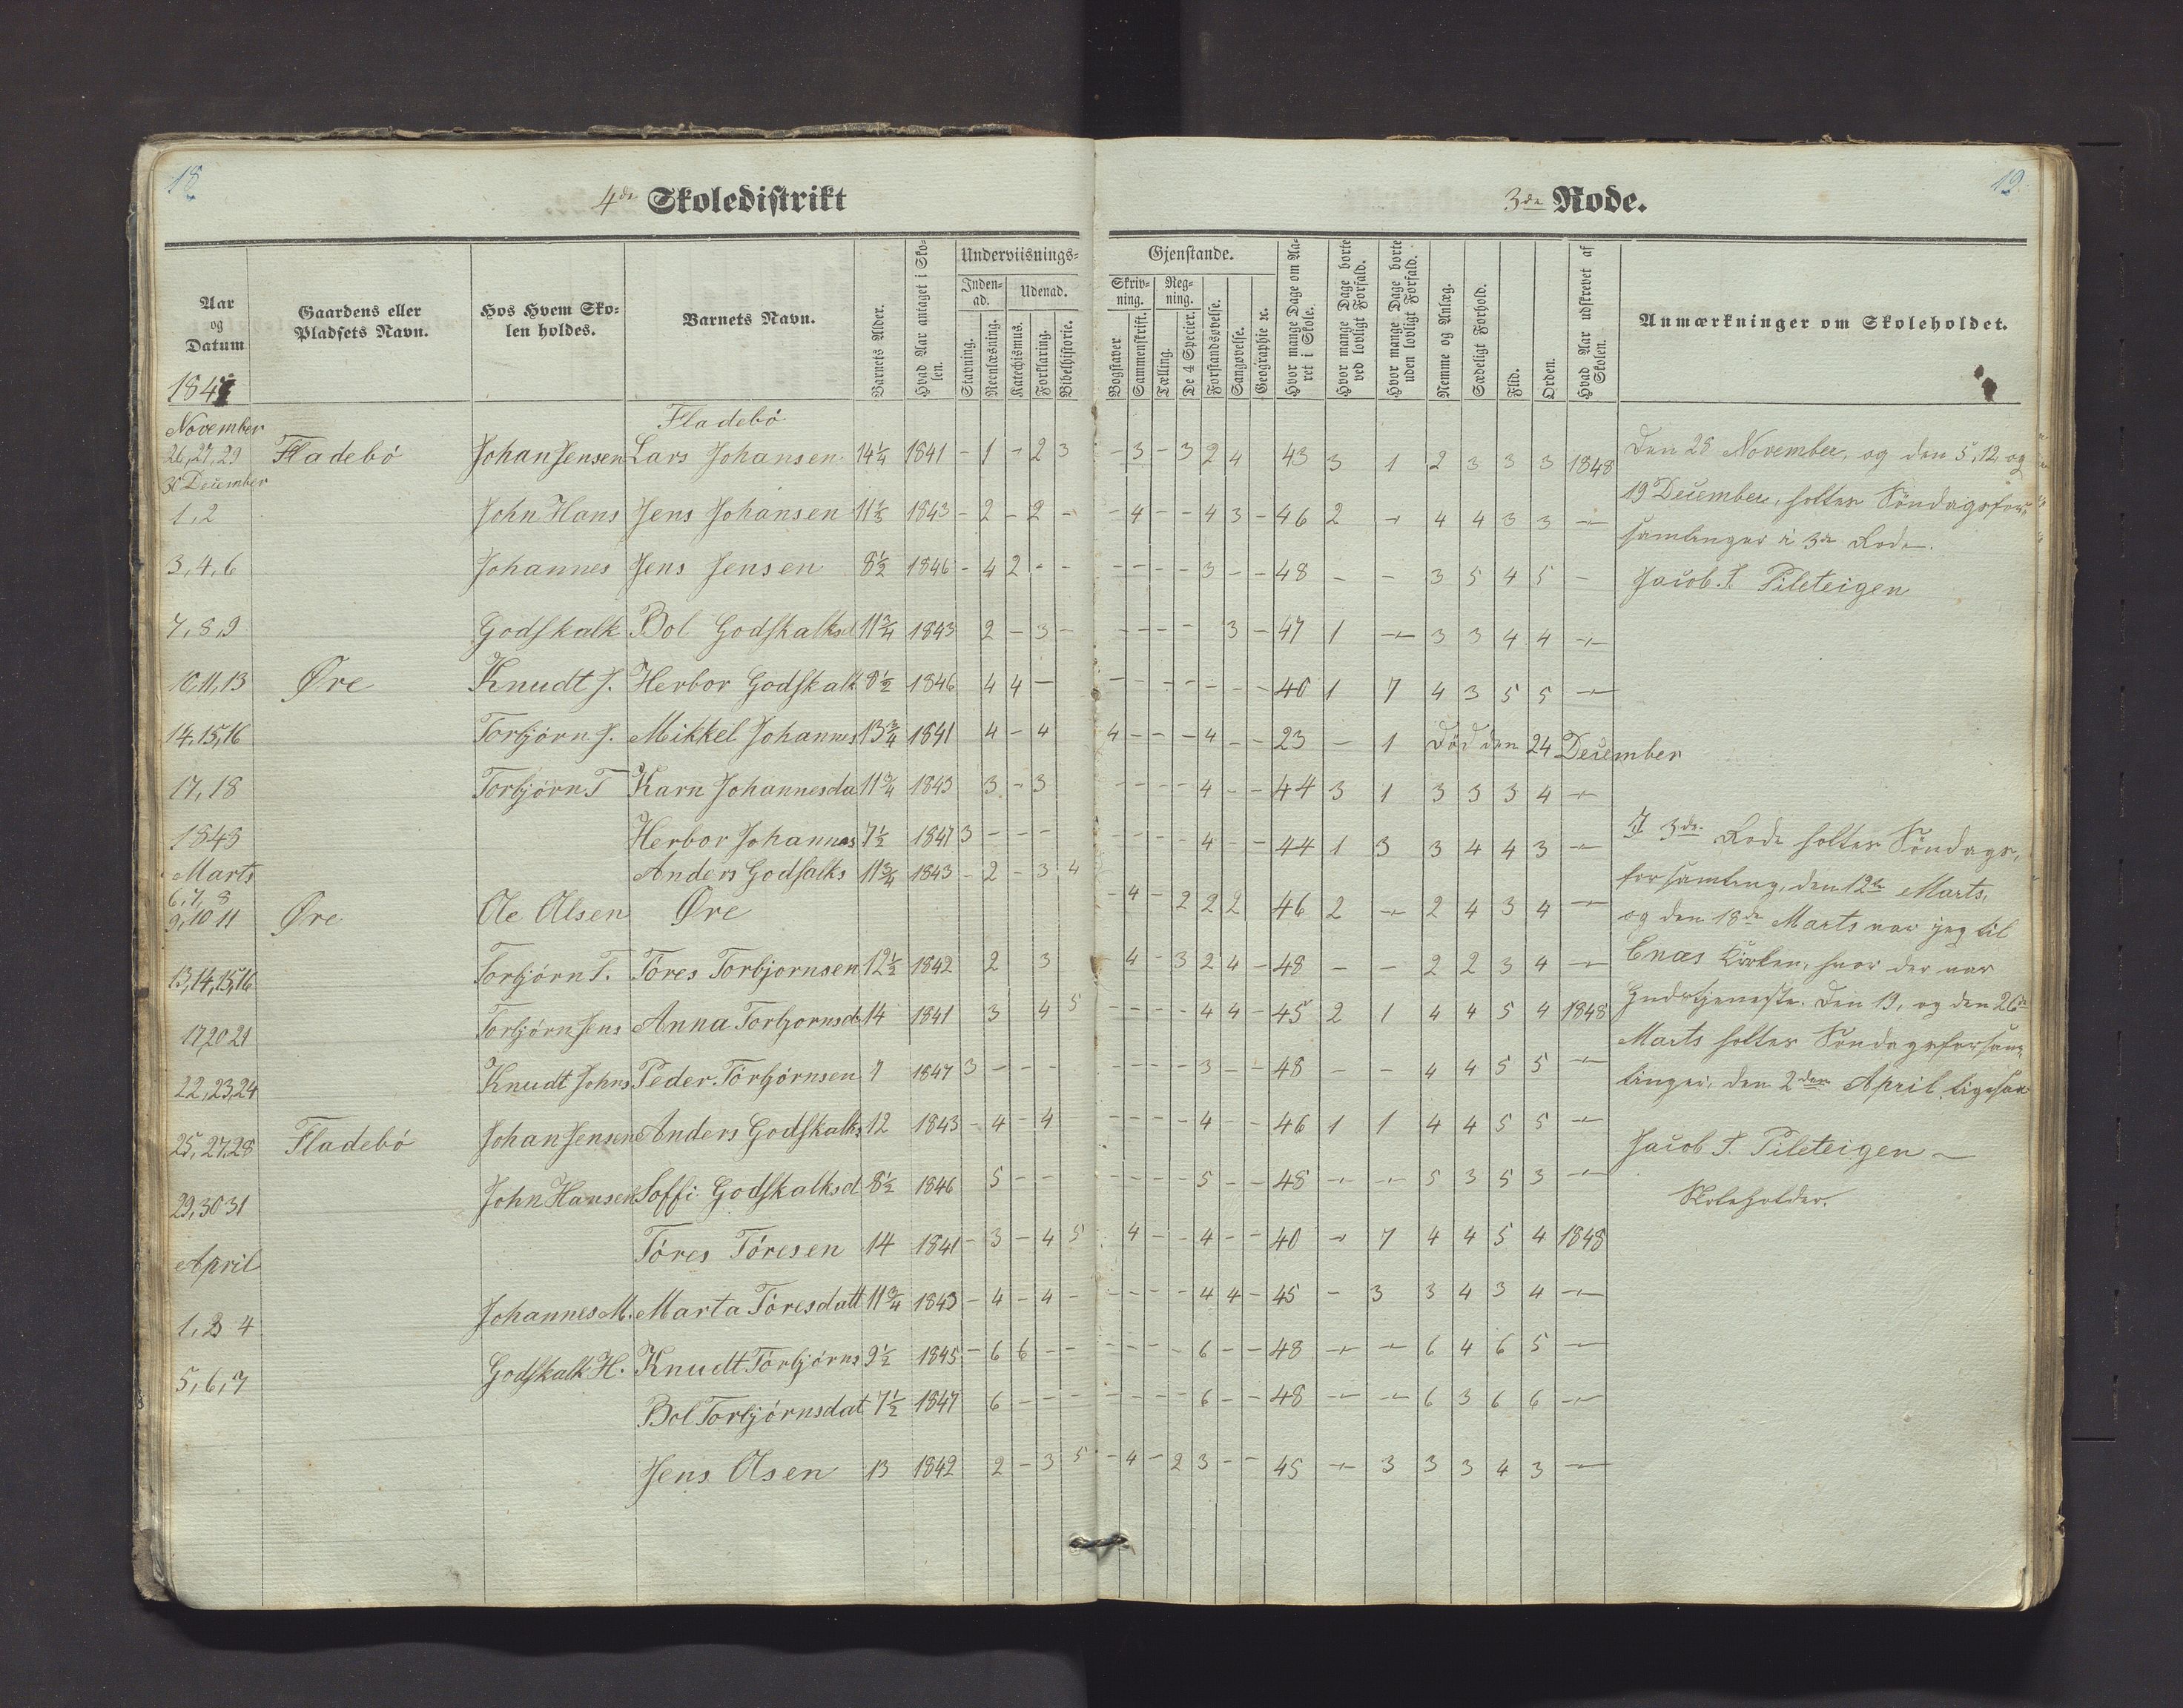 18
19
4de Skoledistrikt
3de Rode.
Aar og Datum
Gaardens eller Pladsets Navn.
Hos Hvem Skolen holdes.
Barnets Navn.
Barnets Alder.
Hvad Aar antaget i Skolen.
Underviisnings-
Inden-ad.
Udenad.
Stavning.
Reenlæsning.
Katechismus.
Forklaring.
Bibelhistorie.
Gjenstande.
Skriv-ning.
Reg-ning.
Bogstaver.
Sammenskrift.
Tælling.
De 4 Specier.
Forstandsøvelse.
Sangøvelse.
Geographie ꝛc.
Hvor mange Dage om Aaret i Skole.
Hvor mange Dage borte ved lovligt Forfald.
Hvor mange Dage borte uden lovligt Forfald.
Nemme og Anlæg.
Sædeligt Forhold.
Flid.
Orden.
Hvad Aar udskrevet af Skolen.
Anmærkninger om Skoleholdet.
1847
November
Fladebö
26, 27, 29 Fladebö Johan Jensen Lars Johansen 14¼ 1841 - 1 - 2 3 - 3 - 3 2 4 43 3 1 2 3 3 3 1848
30 December
1, 2 John Hans Jens Johansen 11⅓ 1843 - 2 - 2 - - 4 - - 4 3 - 46 2 - 4 4 3 3 -
3, 4, 6 Johannes Jens Jensen 8½ 1846 - 4 2 - - - - - - 3 - - 48 - - 3 5 4 5 -
7, 8, 9 Godskalk Bol Godskalksd 11¾ 1843 2 - 3 - - - - - 3 - 47 1 - 3 3 4 4 -
10, 11, 13 Øre Knudt J. Herbor Godskalk 8½ 1846 4 4 - - - - - - - - 40 1 7 4 3 5 5 -
14, 15, 16 Torbjörn J. Mikkel Johannes 13¾ 1841 4 - 4 4 - - - 4 - - 23 - 1 Död den 24 December
17, 18 Torbjörn T Karn Johannesda 11¾ 1843 3 - 3 - - - - 4 - - 44 3 1 3 3 3 4 -
1848 Herbor Johannes 7½ 1847 3 - - - - - - - 4 - - 44 1 3 3 4 4 3 -
Marts Anders Godsalks 11¾ 1843 - 2 - 3 4 - 4 - 2 2 2 46 2 - 2 4 3 4 -
6, 7, 8
9, 10 11 Øre Ole Olsen Øre
13, 14, 15, 16 Torbjörn T. Töres Torbjornsen 12½ 1842 2 3 - 4 - 3 2 4 - 48 - - 2 2 3 4 -
17 20 21 Torbjörn Jens Anna Torbjornsd 14 1841 3 4 5 - - - - 4 4 - 45 2 1 4 4 5 4 1848
22, 23, 24 Knudt Johns Peder Törbjörnsen 7 1847 3 - - - - - - - 3 - - 48 - - 4 4 5 5 -
25, 27, 28 Fladebö Johan Jensen Anders Godskalks 12 1843 - 4 - 4 - - - - 4 - - 46 1 1 4 4 5 5 -
29, 30 31 John Hansen Soffi Godskalksd 8½ 1846 5 - - - - - - 5 - - 48 - - 5 3 5 3 -
Töres Töresen 14 1841 - 3 - 4 5 4 - - 4 - - 40 - 7 4 4 5 4 1848
April
1, 3 4 Johannes M. Marta Töresdatt 11¾ 1843 - 4 - 4 - - - - - 4 4 - 45 - 3 3 4 3 4 -
5, 6, 7 Godskalk H. Knudt Törbjörns 9½ 1845 - 6 6 - - - - - - 6 - - 48 - - 6 4 6 5 -
Bol Torbjörnsdat 7½ 1847 6 - - - - - - - 6 - - 48 - - 6 3 6 6 -
Jens Olsen 13 1842 2 - 3 5 - 4 - 2 3 - - 45 - 3 3 3 4 3 -
Den 28 November, og den 5, 12 og
19 December, holtes Söndagsfor-
samlinger i 3de Rode.
Jacob T. Pileteigen
I 3de Rode holtes Söndags-
forsamling, den 12te Marts,
og den 18de Marts var jeg til
Kirken, hvor der var
Gudstjeneste. Den 19, og den 26de
Marts holtes Söndagsforsam-
linger, den 2den April ligesaa
Jacob T. Pileteigen
Skoleholder.